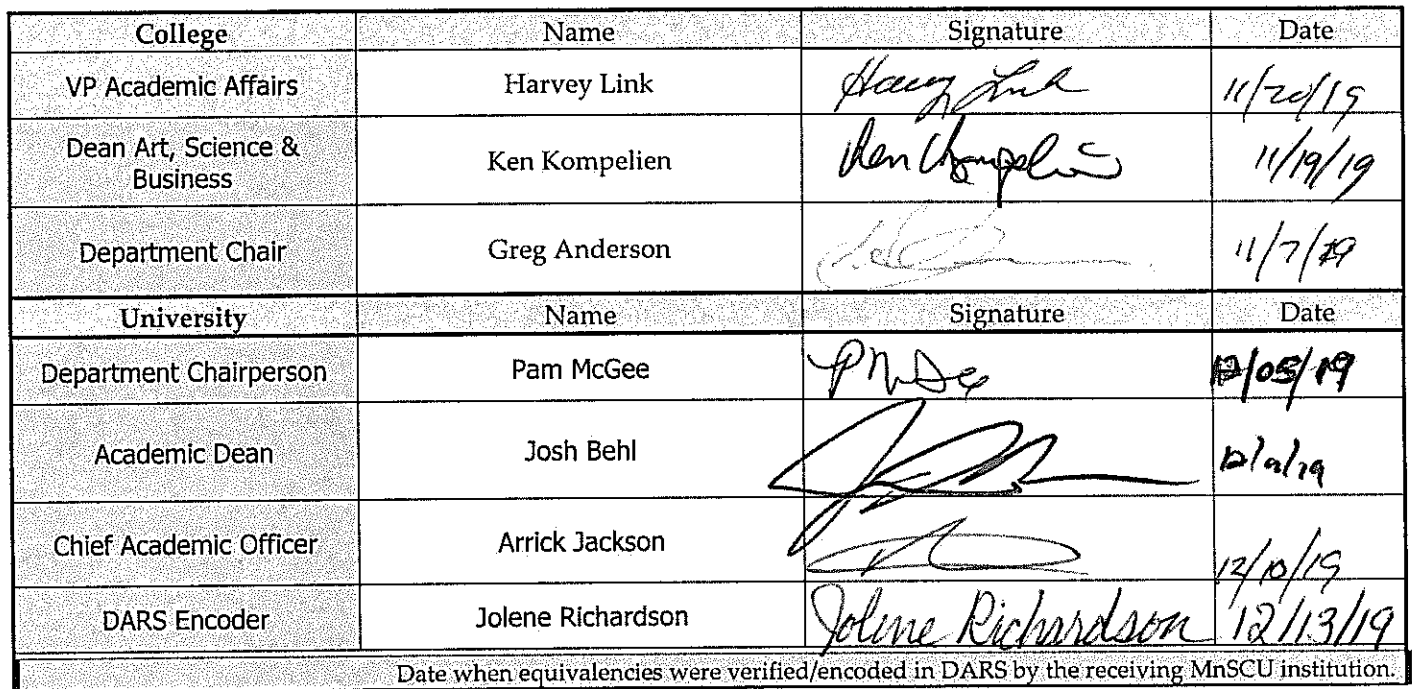 College Name Signature Date
VP Academic Affairs Harvey Link Harvey Link 11/20/19
Dean Art, Science &
Business Ken Kompelien Ken Kompelien 11/19/19
Department Chair Greg Anderson 11/7/19
University Name Signature Date
Department Chairperson Pam McGee P McGee 12/05/19
Academic Dean Josh Behl 12/9/19
Chief Academic Officer Arrick Jackson 12/10/19
DARS Encoder Jolene Richardson Jolene Richardson 12/13/19
Date when equivalencies were verified/encoded in DARS by the receiving MnSCU institution.